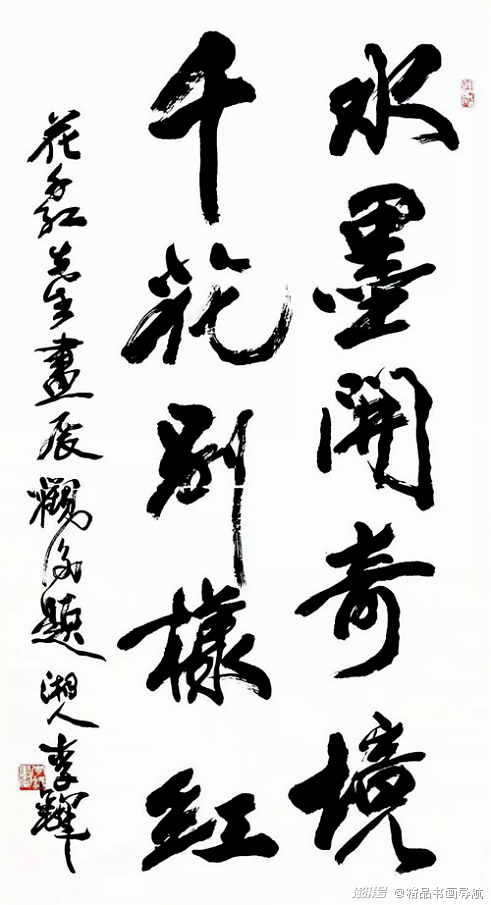 水墨開奇境
千花别樣紅
花千紅先生畫展 題 湘人李鐸
澎湃号 @精品书画导航